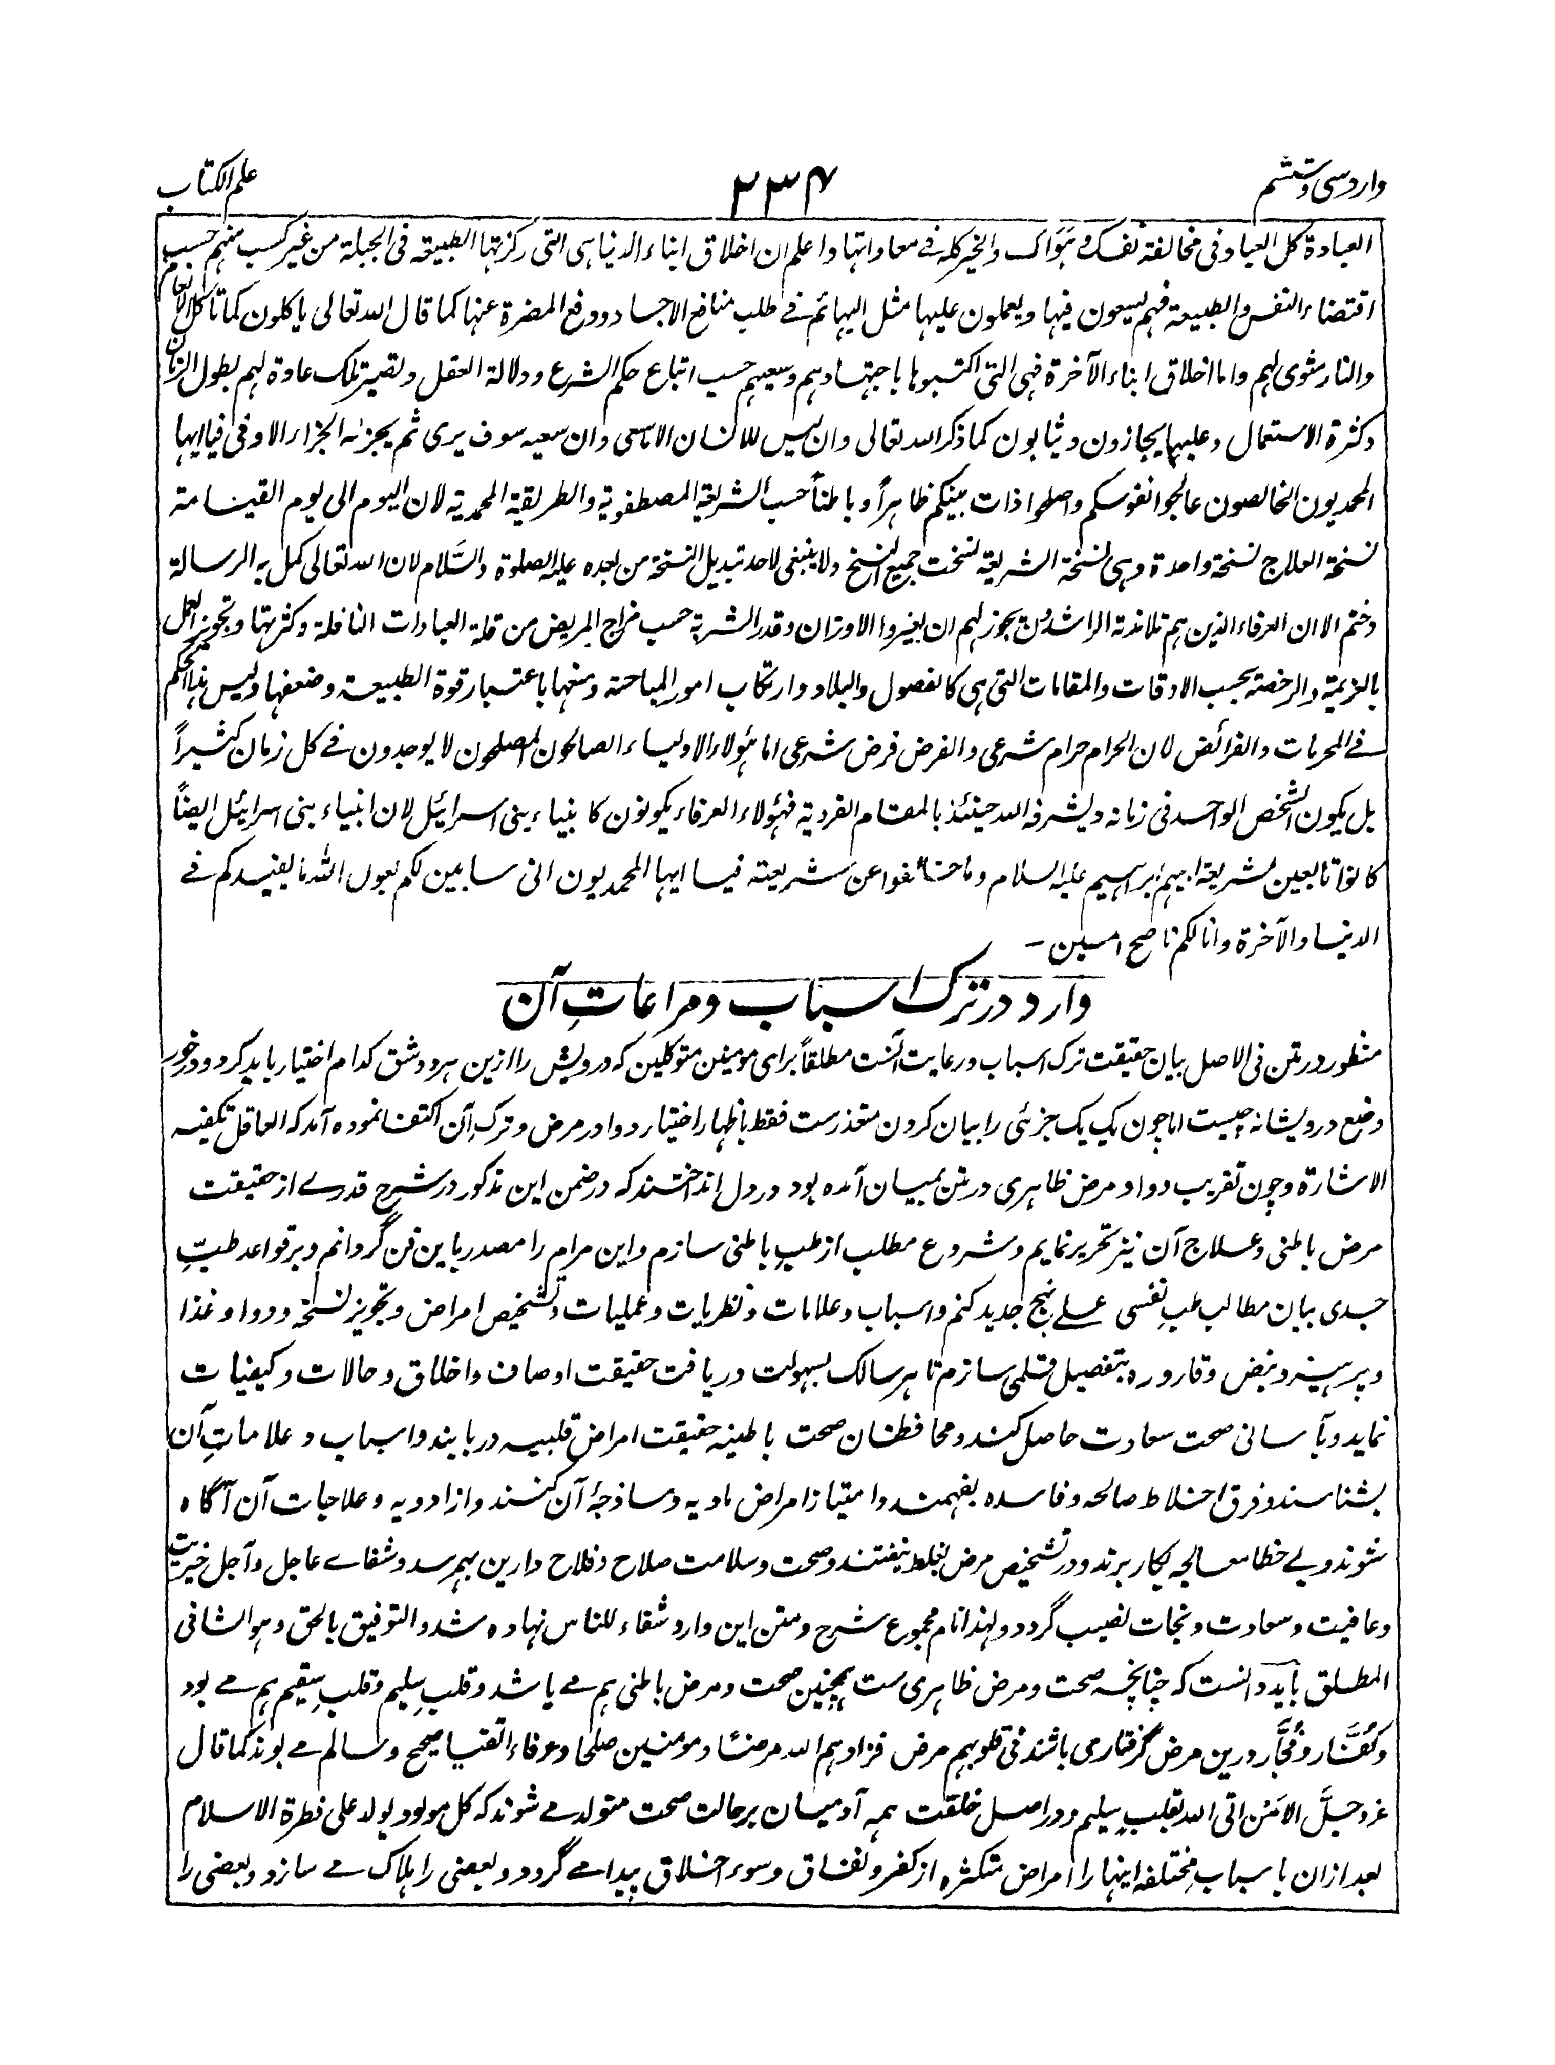 وارد سی و ششم
۲۳۶
علم الکتاب
العبادة کل العباد فی مخالفة نفسک و ہواک والخیر کلہ فی معاداتہا واعلم ان اخلاق ابناء الدنیا ہی التی رکزتہا الطبیعہ فی الجبلة من غیر کسب منہم حسب
اقتضاء النفس والطبیعة فہم یسعون فیہا و یعملون علیہا مثل البہائم فی طلب منافع الاجساد و دفع المضرة عنہا کما قال اللہ تعالی یاکلون کما تاکل الانعام
والنار مثوی لہم واما اخلاق ابناء الآخرة فہی التی اکتسبوہا باجتہادہم وسعیہم حسب اتباع حکم الشرع و دلالة العقل و تصیر تلک عادة لہم بطول الزمان
و کثرة الاستعمال و علیہا یجازون و یثابون کما ذکر اللہ تعالی وان لیس للانسان الا ما سعی وان سعیہ سوف یری ثم یجزٰہ الجزاء الاوفی فیا ایہا
المحمدیون الخالصون عالجوا نفوسکم واصلحوا ذات بینکم ظاہراً و باطناً حسب الشریعة المصطفویة والطریقة المحمدیة لان الیوم الی یوم القیامة
نسخة العلاج نسخة واحدة وہی نسخة الشریعة نسخت جمیع النسخ ولا ینبغی لاحد تبدیل النسخة من بعدہ علیہ الصلوة والسَّلام لان اللہ تعالی کمل بہ الرسالة
و ختم الا ان العرفاء الذین ہم تلامذتہ الراشدون یجوز لہم ان یغیروا الاوزان و قدر الشربة حسب مزاج المریض من قلة العبادات النافلة و کثرتہا و تجویز العمل
بالعزیمة والرخصة بحسب الاوقات والمقامات التی ہی کالفصول والبلاد وارتکاب امور المباحة و منعہا باعتبار قوة الطبیعة و ضعفہا ولیس ہذا الحکم
فی المحرمات والفرائض لان الحرام حرام شرعی والفرض فرض شرعی اما ہٰؤلاء الاولیاء الصالحون المصلحون لا یوجدون فی کل زمان کثیراً
بل یکون الشخص الواحد فی زمانہ و یشرفہ اللہ حینئذ بالمقام الفردیة فہٰؤلاء العرفاء یکونون کانبیاء بنی اسرائیل لان انبیاء بنی اسرائیل ایضاً
کانوا تابعین لشریعة ابیہم ابراہیم علیہ السلام وما خالفوا عن شریعتہ فیا ایہا المحمدیون انی سابین لکم بعون اللہ ما یفیدکم فی
الدنیا والآخرة وانا لکم ناصح امین ـ
وارد در ترک اسباب و مراعاتِ آن
منظور در متن فی الاصل بیان حقیقت ترک اسباب و رعایت آنست مطلقاً برای مومنین متوکلین کہ درویش را ازین ہر دو شق کدام اختیار باید کرد و در خور
وضع درویشانہ چیست اما چون یک یک جزئی را بیان کردن متعذرست فقط باظہار اختیار دوا در مرض و ترکِ آن اکتفا نمودہ آمد کہ العاقل تکفیہ
الاشارة و چون تقریب دوا و مرض ظاہری در متن بمیان آمدہ بود در دل انداختند کہ در ضمن این مذکور در شرح قدرے از حقیقت
مرض باطنی و علاج آن نیز تحریر نمایم و شروع مطلب از طبِ باطنی سازم و این مرام را مصدر باین فن گردانم و بر قواعد طبِّ
جسدی بیان مطالب طبِ نفسی علے نہج جدید کنم و اسباب و علامات و نظریات و عملیات و تشخیص امراض و تجویز نسخہ و دوا و غذا
و پرہیز و نبض و قارورہ بتفصیل قلمی سازم تا ہر سالک بسہولت دریافت حقیقت اوصاف و اخلاق و حالات و کیفیات
نماید و بآسانی صحت سعادت حاصل کند و محافظان صحت باطنیہ حقیقت امراض قلبیہ دریابند و اسباب و علاماتِ آن
بشناسند و فرق اخلاط صالحہ و فاسدہ بفہمند و امتیاز امراض مادیہ و ساذجۂ آن کنند و از ادویہ و علاجات آن آگاہ
شوند و بے خطا معالجہ بکار برند و در تشخیص مرض بغلط نیفتند و صحت و سلامت صلاح و فلاح دارین بہمرسد و شفاے عاجل و آجل خیریت
و عافیت و سعادت و نجات نصیب گردد و لہٰذا نام مجموع شرح و متن این وارد شفاء للناس نہادہ شد و التوفیق بالحق وہو الشافی
المطلق باید دانست کہ چنانچہ صحت و مرض ظاہری ست ہمچنین صحت و مرض باطنی ہم مے باشد و قلبِ سلیم و قلبِ سقیم ہم مے بود
و کُفَّار و فُجَّار درین مرض گرفتار می باشند فی قلوبہم مرض فزادہم اللہ مرضا و مومنین صلحا و عرفاء اتقیا صحیح و سالم مے بوند کما قال
عز و جلَّ الا مَنْ اتی اللہ بقلبٍ سلیم و در اصل خلقت ہمہ آدمیان بر حالت صحت متولد مے شوند کہ کل مولود یولد علی فطرة الاسلام
بعد ازان باسبابِ مختلفہ اینہا را امراض متکثرہ از کفر و نفاق و سوء اخلاق پیدا مے گردد و بعضی را ہلاک مے سازد و بعضی را